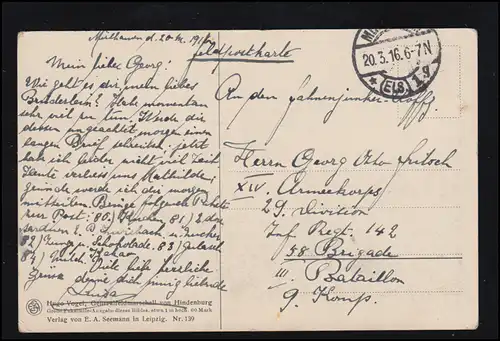 Mülhausen d. 20. III. 1916
Feldpostkarte
20.3.16.6-7N
(ELS) 1 g
Mein lieber Georg!
Wie geht es dir, mein liebes
Brüderlein? Habe momentan
sehr viel zu tun. Werde dir
dessen ungeachtet morgen einen
langen Brief schreiben. jetzt
hab ich leider nicht viel Zeit.
Tante verliess uns
werde ich dir morgen
mitteilen. Bringe folgende Pakete
zur Post: 80.) Kuchen, 81.)
u. Zucker
82) u. Schokolade. 83) Gulasch
84) Milch, Kakao
Viele liebe herzliche
Grüsse deine dich innig liebende
An den Fahnenjunker-Uoffz.
Herrn Georg Otto Fritsch
XIV Armeekorps
29. Division
Inf. Regt. 142
58 Brigade
III. Bataillon
9. Komp.
Hugo Vogel, Generalfeldmarschall von Hindenburg
Große Faksimile-Ausgabe dieses Bildes, etwa 1 m hoch, 60 Mark
Verlag von E. A. Seemann in Leipzig. Nr. 139